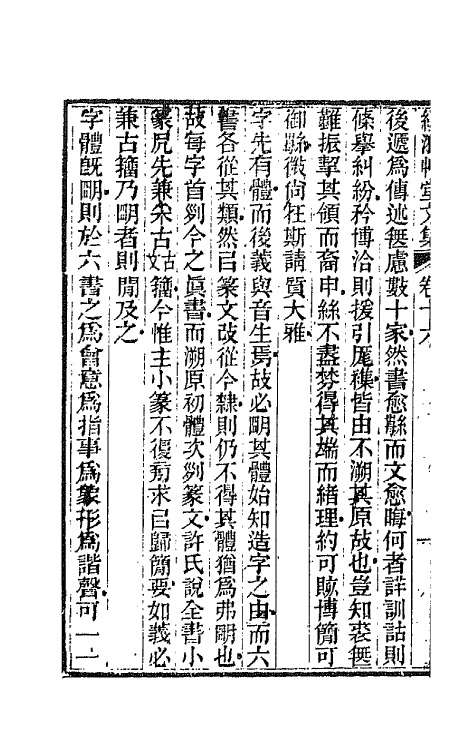 後遞爲傳述無慮數十家然書愈緐而文愈晦何者詳訓詁則
條舉糾紛矜博洽則援引厖襍皆由不溯其原故也豈知裘無
雖振挈其領而裔申絲不盡棼得其耑而緒理約可賅博簡可
御緐徵尙在斯請質大雅
字先有體而後義與音生焉故必朙其體始知造字之由而六
書各從其類然㠯篆文攷從今隸則仍不得其體猶爲弗朙也
故每字首列今之眞書而溯原初體次列篆文許氏說全書小
篆凥先兼采古文古籀今惟主小篆不復㫄求㠯歸簡要如義必
兼古籀乃朙者則閒及之
字體旣朙則於六書之爲會意爲指事爲象形爲諧聲可一一